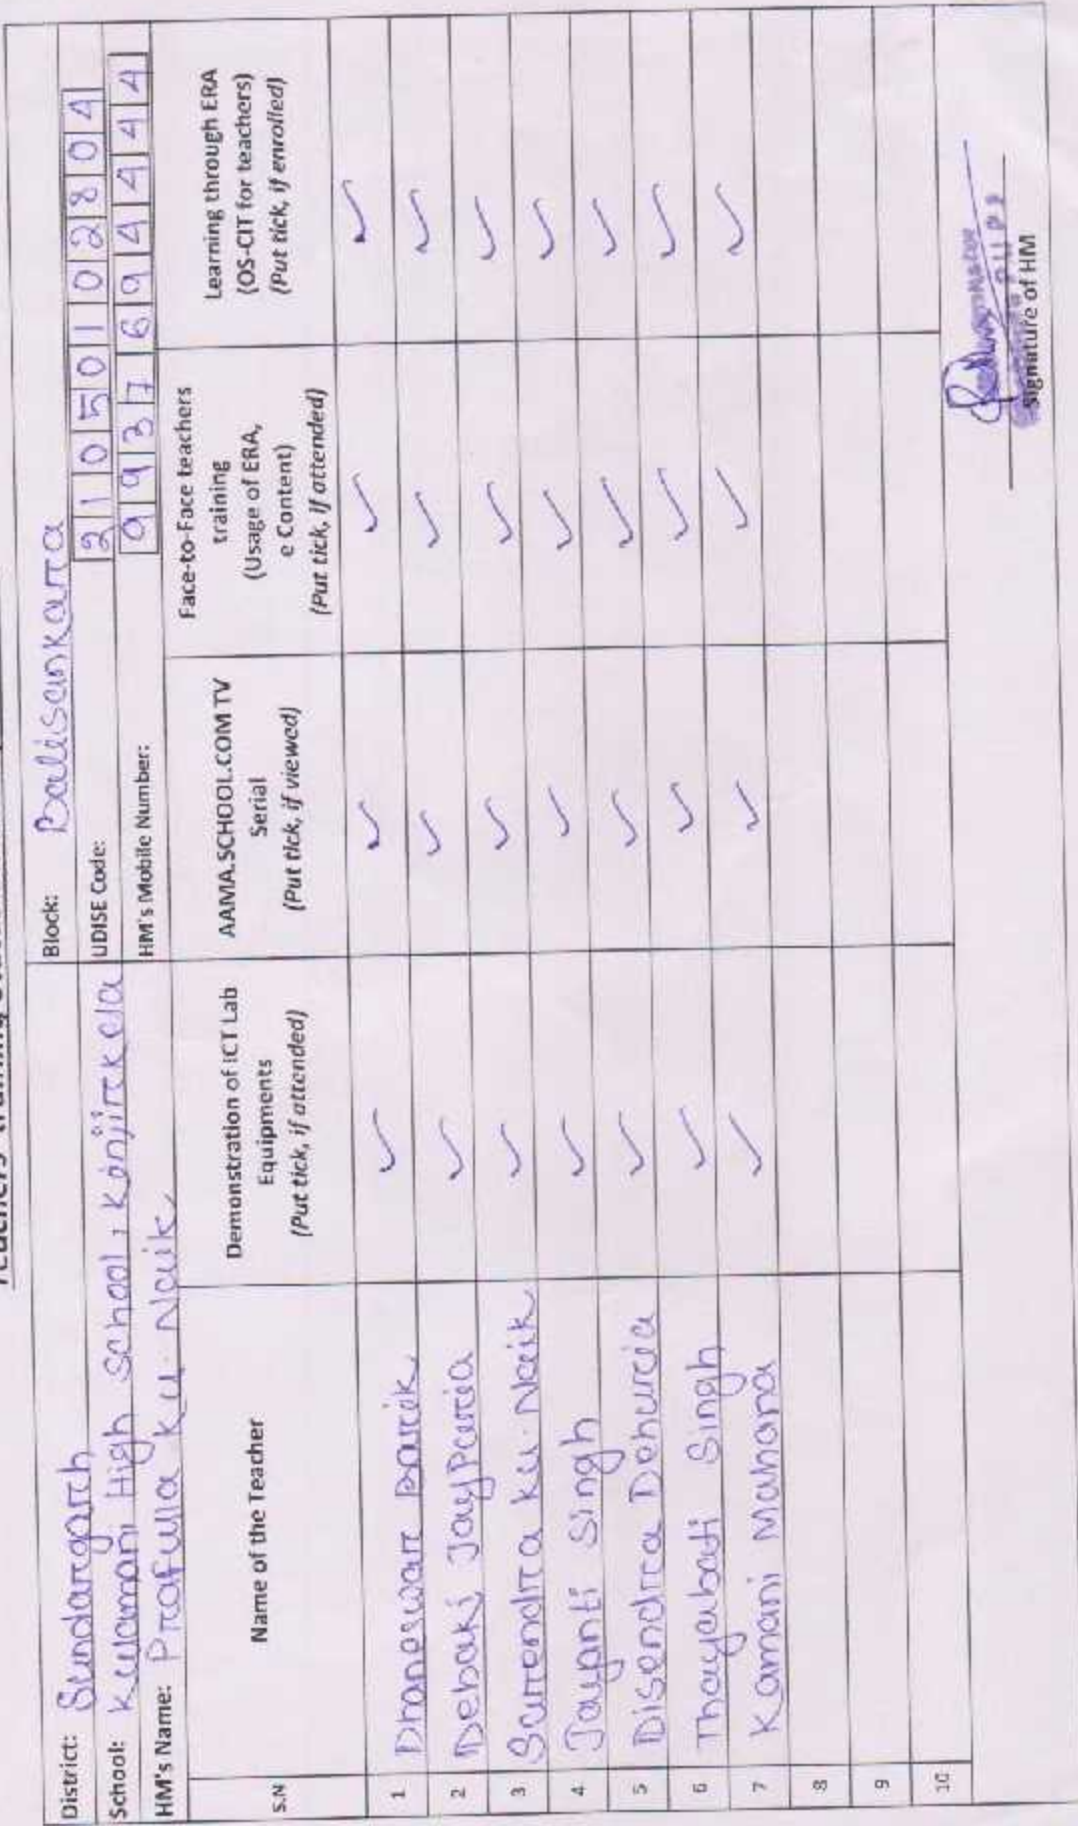 District: Sundargarh Block: Balisankara
School: Kulamani High School, Könjirkela UDISE Code: 21050102804
HM's Name: Prafulla Ku. Naik HM's Mobile Number: 9937694444
S.N Name of the Teacher Demonstration of ICT Lab Equipments (Put tick, if attended) AAMA.SCHOOL.COM TV Serial (Put tick, if viewed) Face-to-Face teachers training (Usage of ERA, e Content) (Put tick, if attended) Learning through ERA (OS-CIT for teachers) (Put tick, if enrolled)
1 Dhaneswar Barik ✓ ✓ ✓ ✓
2 Debaki Jaypuria ✓ ✓ ✓ ✓
3 Surendra Ku. Naik ✓ ✓ ✓ ✓
4 Jayanti Singh ✓ ✓ ✓ ✓
5 Disendra Dehuria ✓ ✓ ✓ ✓
6 Thayabati Singh ✓ ✓ ✓ ✓
7 Kamani Mahana ✓ ✓ ✓ ✓
8
9
10
Signature of HM